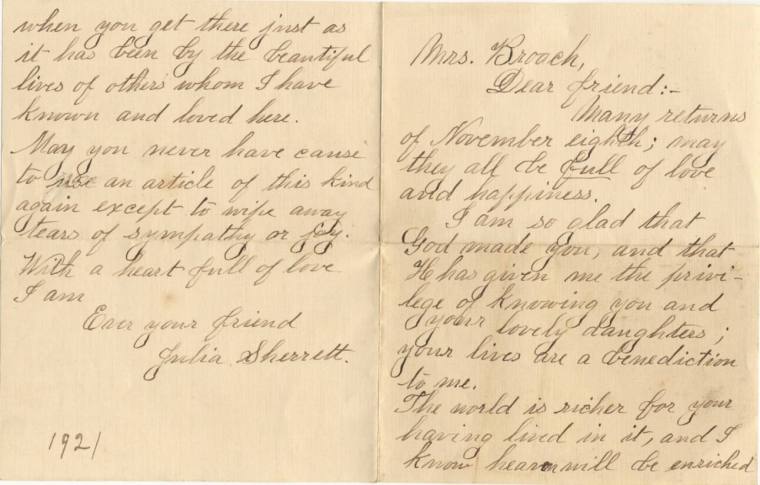 Mrs. Broach,
Dear friend:-
Many returns
of November eighth; may
they all be full of love
and happiness.
I am so glad that
God made you, and that
He has given me the privi-
lege of knowing you and
your lovely daughters;
your lives are a benediction
to me.
The world is richer for your
having lived in it, and I
know heaven will be enriched
when you get there just as
it has been by the beautiful
lives of others whom I have
known and loved here.
May you never have cause
to use an article of this kind
again except to wipe away
tears of sympathy or joy.
With a heart full of love
I am
Ever your friend
Julia Sherrett.
1921